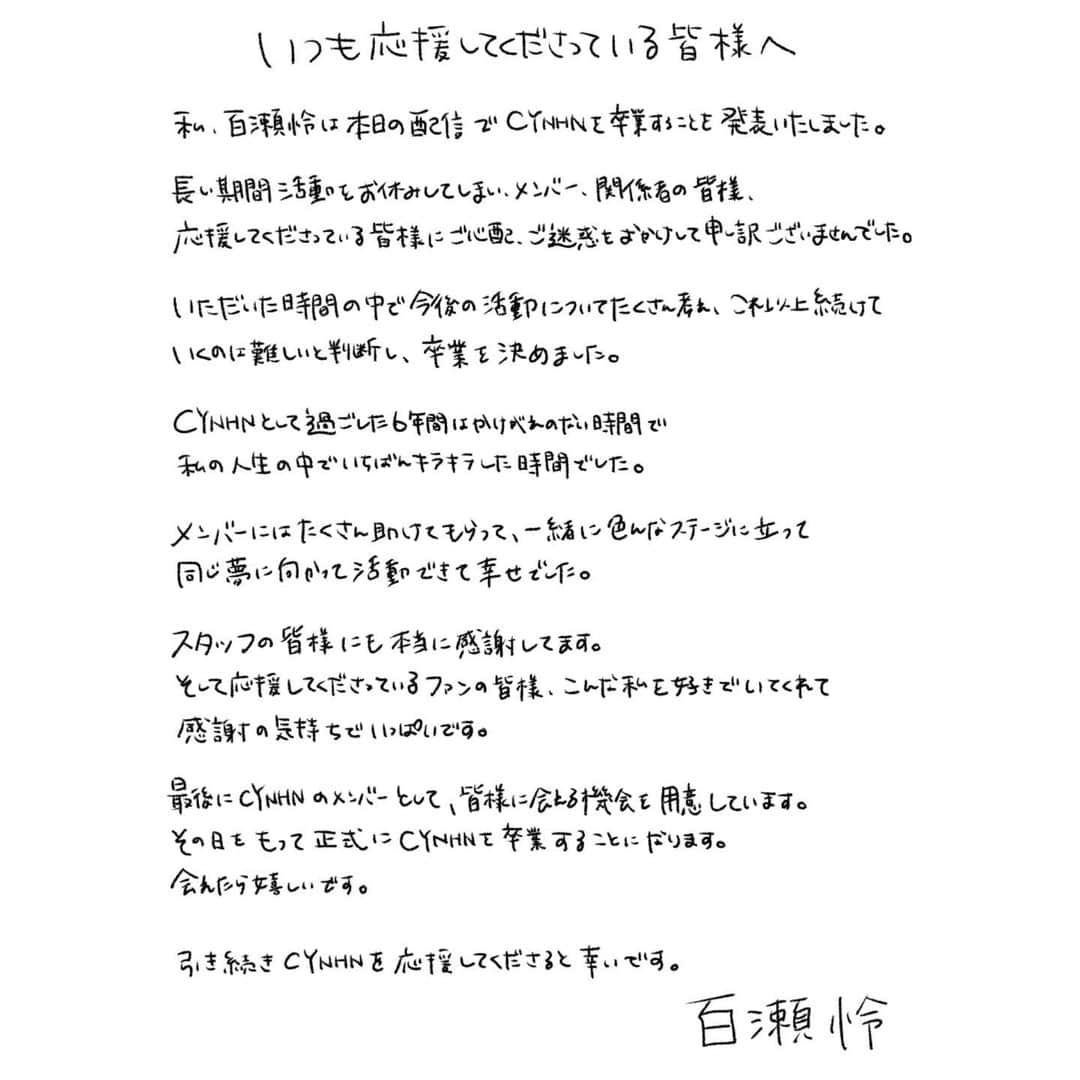 いつも応援してくださっている皆様へ
私、百瀬怜は本日の配信でCYNHNを卒業することを発表いたしました。
長い期間活動をお休みしてしまい、メンバー、関係者の皆様、
応援してくださっている皆様にご心配、ご迷惑をおかけして申し訳ございませんでした。
いただいた時間の中で今後の活動についてたくさん考え、これ以上続けて
いくのは難しいと判断し、卒業を決めました。
CYNHNとして過ごした6年間はかけがえのない時間で
私の人生の中でいちばんキラキラした時間でした。
メンバーにはたくさん助けてもらって、一緒に色んなステージに立って
同じ夢に向かって活動できて幸せでした。
スタッフの皆様にも本当に感謝してます。
そして応援してくださっているファンの皆様、こんな私を好きでいてくれて
感謝の気持ちでいっぱいです。
最後にCYNHNのメンバーとして、皆様に会える機会を用意しています。
その日をもって正式にCYNHNを卒業することになります。
会えたら嬉しいです。
引き続きCYNHNを応援してくださると幸いです。
百瀬怜